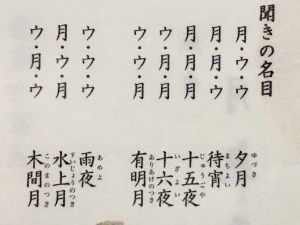 聞きの名目
月・ウ・ウ 夕月 ゆづき
月・月・ウ 待宵 まちよい
月・月・月 十五夜 じゅうごや
ウ・月・月 十六夜 いざよい
ウ・ウ・月 有明月 ありあけのつき
ウ・ウ・ウ 雨夜 あめよ
月・ウ・月 水上月 すいじょうのつき
ウ・月・ウ 木間月 このまのつき